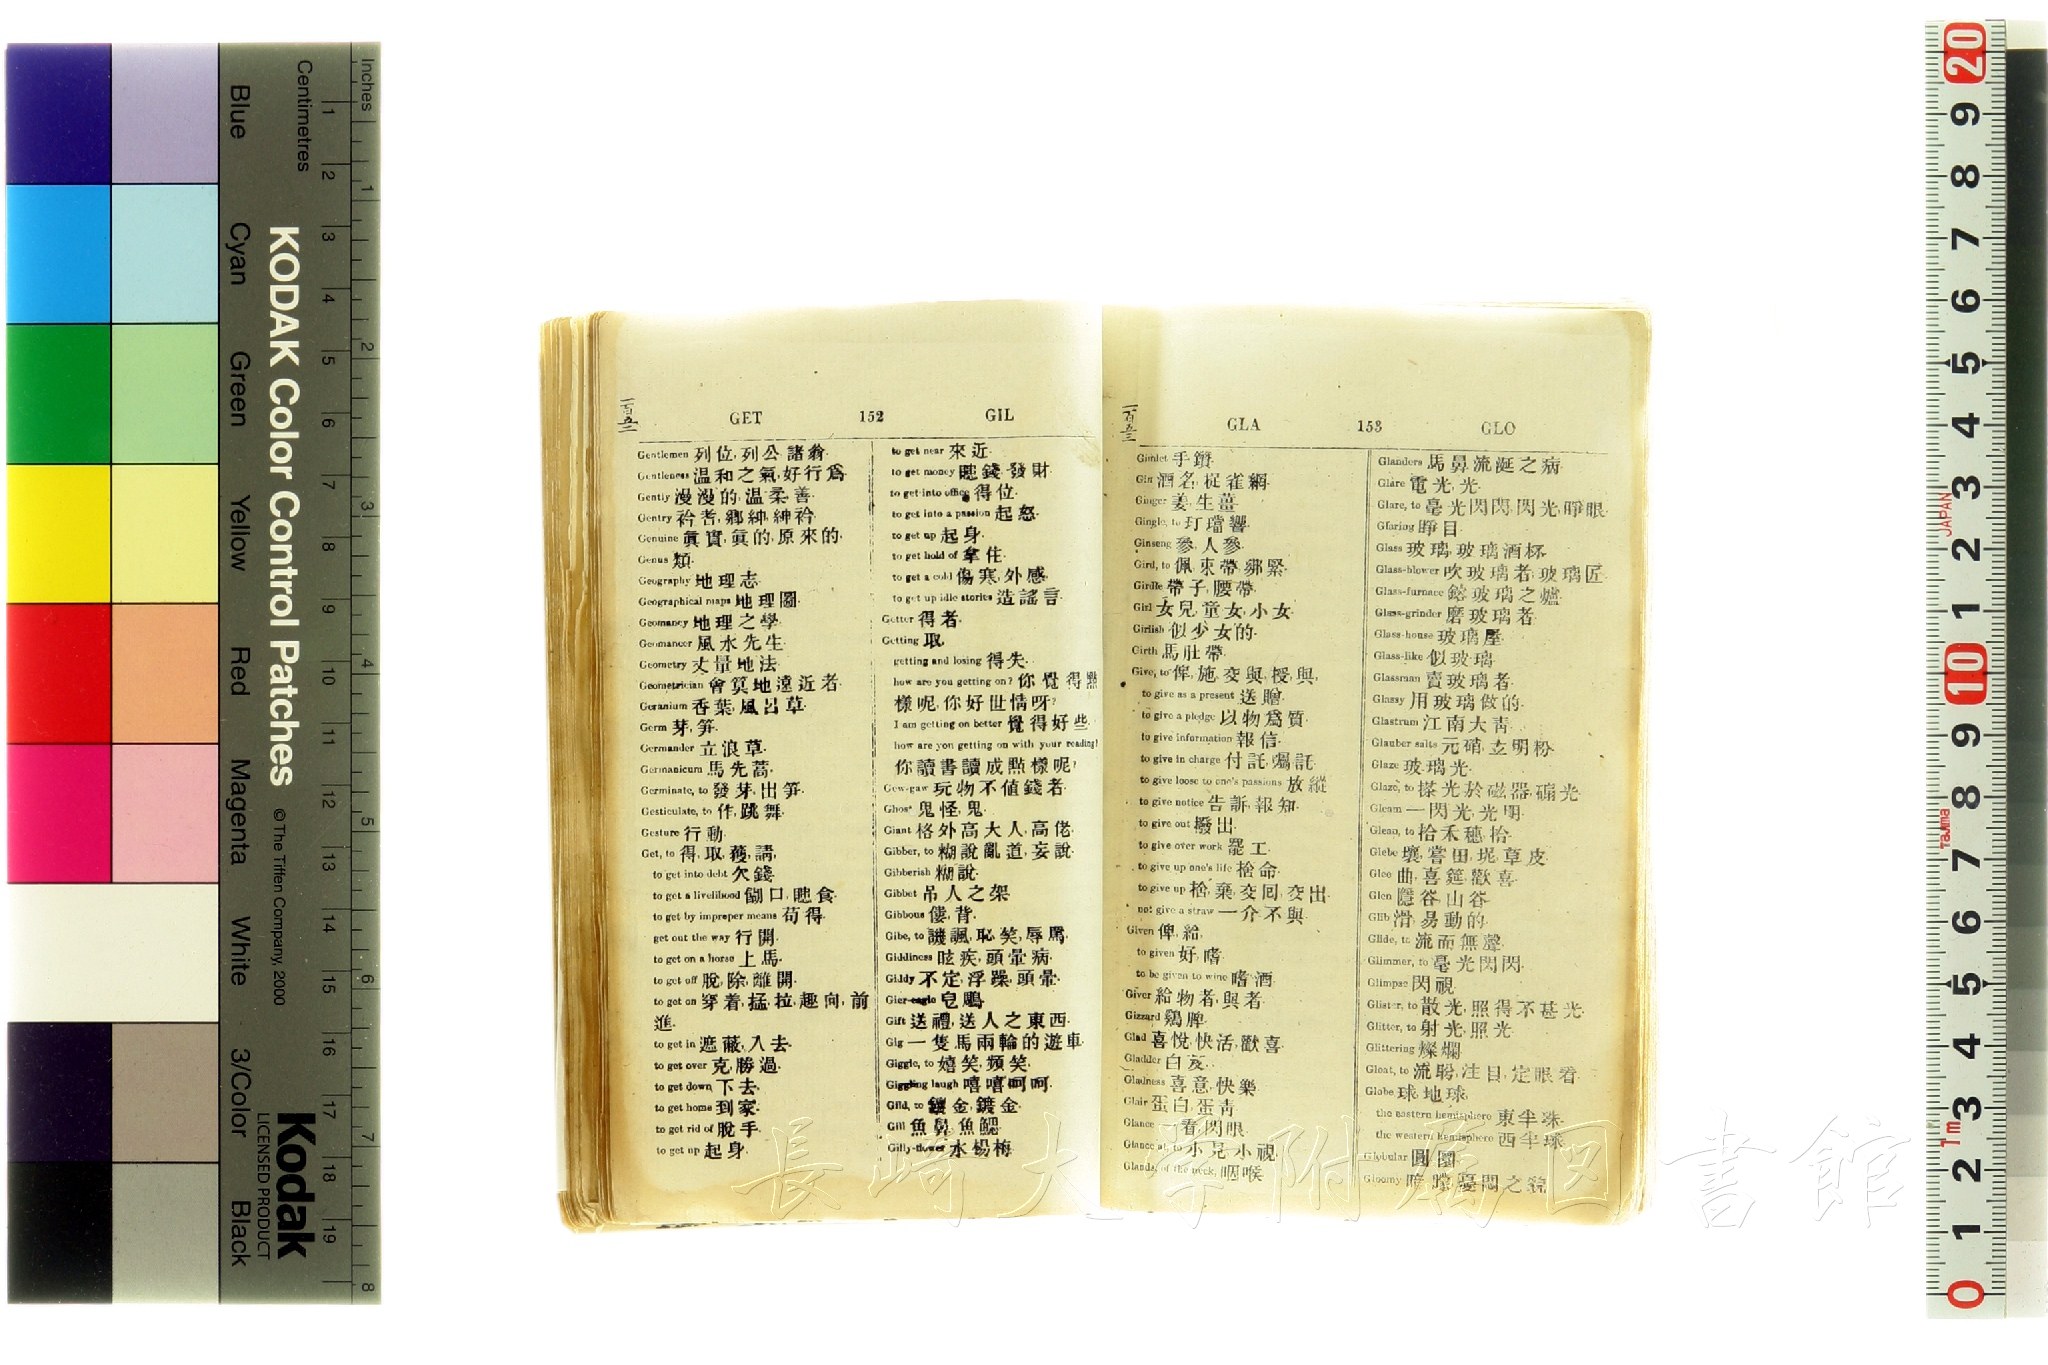 Inches
Centimetres
KODAK Color Control Patches
© The Tiffen Company, 2000
Blue
Cyan
Green
Yellow
Red
Magenta
White
3/Color
Black
Kodak
LICENSED PRODUCT
一百五二
GET 152 GIL
Gentlemen 列位,列公諸翁
Gentleness 温和之氣,好行爲
Gently 漫漫的,温柔,善
Gentry 衿耆,鄉紳,紳衿
Genuine 眞實,眞的,原來的
Genus 類
Geography 地理志
Geographical maps 地理圖
Geomancy 地理之學
Geomancer 風水先生
Geometry 丈量地法
Geometrician 會算地遠近者
Geranium 香葉,風呂草
Germ 芽,笋
Germander 立浪草
Germanicum 馬先蒿
Germinate, to 發芽,出笋
Gesticulate, to 作,跳舞
Gesture 行動
Get, to 得,取,獲,請
to get into debt 欠錢
to get a livelihood 餬口,聽食
to get by improper means 苟得
get out the way 行開
to get on a horse 上馬
to get off 脫,除,離開
to get on 穿着,猛拉,趣向,前
進
to get in 遮蔽,入去
to get over 克,勝過
to get down 下去
to get home 到家
to get rid of 脫手
to get up 起身
to get near 來近
to get money 聽錢,發財
to get into office 得位
to get into a passion 起怒
to get up 起身
to get hold of 拿住
to get a cold 傷寒,外感
to get up idle stories 造謠言
Getter 得者
Getting 取
getting and losing 得失
how are you getting on? 你覺得點
樣呢,你好世情呀?
I am getting on better 覺得好些
how are you getting on with your reading?
你讀書讀成點樣呢?
Gew-gaw 玩物不値錢者
Ghost 鬼怪,鬼
Giant 格外高大人,高佬
Gibber, to 糊說亂道,妄說
Gibberish 糊說
Gibbet 吊人之架
Gibbous 僂,背
Gibe, to 譏諷,恥笑,辱罵
Giddiness 眩疾,頭暈病
Giddy 不定,浮躁,頭暈
Gier-eagle 皂鵰
Gift 送禮,送人之東西
Gig 一隻馬兩輪的遊車
Giggle, to 嬉笑,頻笑
Giggling laugh 嘻嘻呵呵
Gild, to 鑲金,鍍金
Gill 魚鼻,魚鰓
Gilly-flower 水楊梅
一百五三
GLA 153 GLO
Gimlet 手鑽
Gin 酒名,捉雀網
Ginger 姜,生薑
Gingle, to 玎璫響
Ginseng 參,人參
Gird, to 佩,束帶,綁緊
Girdle 帶子,腰帶
Girl 女兒,童女,小女
Girlish 似少女的
Girth 馬肚帶
Give, to 俾,施,交與,授,與
to give as a present 送贈
to give a pledge 以物爲質
to give information 報信
to give in charge 付託,囑託
to give loose to one's passions 放縱
to give notice 告訴,報知
to give out 撥出
to give over work 罷工
to give up one's life 捨命
to give up 捨,棄,交囘,交出
not give a straw 一介不與
Given 俾,給
to given 好,嗜
to be given to wine 嗜酒
Giver 給物者,與者
Gizzard 鷄脾
Glad 喜悅,快活,歡喜
Gladder 白芨
Gladness 喜意,快樂
Glair 蛋白,蛋靑
Glance 一看,閃眼
Glance at, to 小見,小視
Glands, of the neck, 咽喉
Glanders 馬鼻流涎之病
Glare 電光,光
Glare, to 毫光閃閃,閃光,睜眼
Glaring 睜目
Glass 玻璃,玻璃酒杯
Glass-blower 吹玻璃者,玻璃匠
Glass-furnace 鎔玻璃之爐
Glass-grinder 磨玻璃者
Glass-house 玻璃屋
Glass-like 似玻璃
Glassman 賣玻璃者
Glassy 用玻璃做的
Glastrum 江南大靑
Glauber salts 元硝,玄明粉
Glaze 玻璃光
Glaze, to 搽光於磁器
Gleam 一閃光,光明
Glean, to 拾禾穗,拾
Glebe 壤,嘗田,坭,草皮
Glee 曲,喜筵,歡喜
Glen 隱谷,山谷
Glib 滑,易動的
Glide, to 流而無聲
Glimmer, to 毫光閃閃
Glimpse 閃視
Glister, to 散光,照得不甚光
Glitter, to 射光,照光
Glittering 燦爛
Gloat, to 流盼,注目,定眼看
Globe 球,地球
the eastern hemisphere 東半球
the western hemisphere 西半球
Globular 圓圝
Gloomy 憂悶之貌
長崎大学附属図書館
JAPAN
Tajima
1m